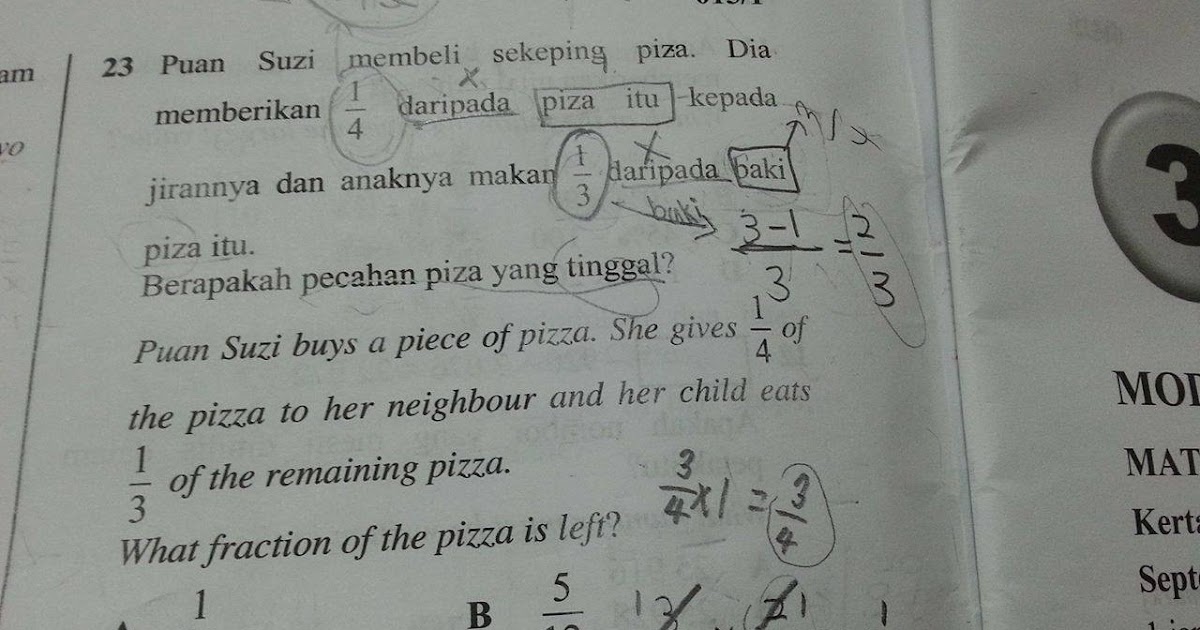 am
23 Puan Suzi membeli sekeping piza. Dia
memberikan 1/4 daripada piza itu kepada
x
jirannya dan anaknya makan 1/3 daripada baki
x
baki
3-1/3 = 2/3
piza itu.
Berapakah pecahan piza yang tinggal?
Puan Suzi buys a piece of pizza. She gives 1/4 of
the pizza to her neighbour and her child eats
1/3 of the remaining pizza.
3/4 x 1 = 3/4
What fraction of the pizza is left?
1
B 5
3
MOD
MAT
Kerta
Sept